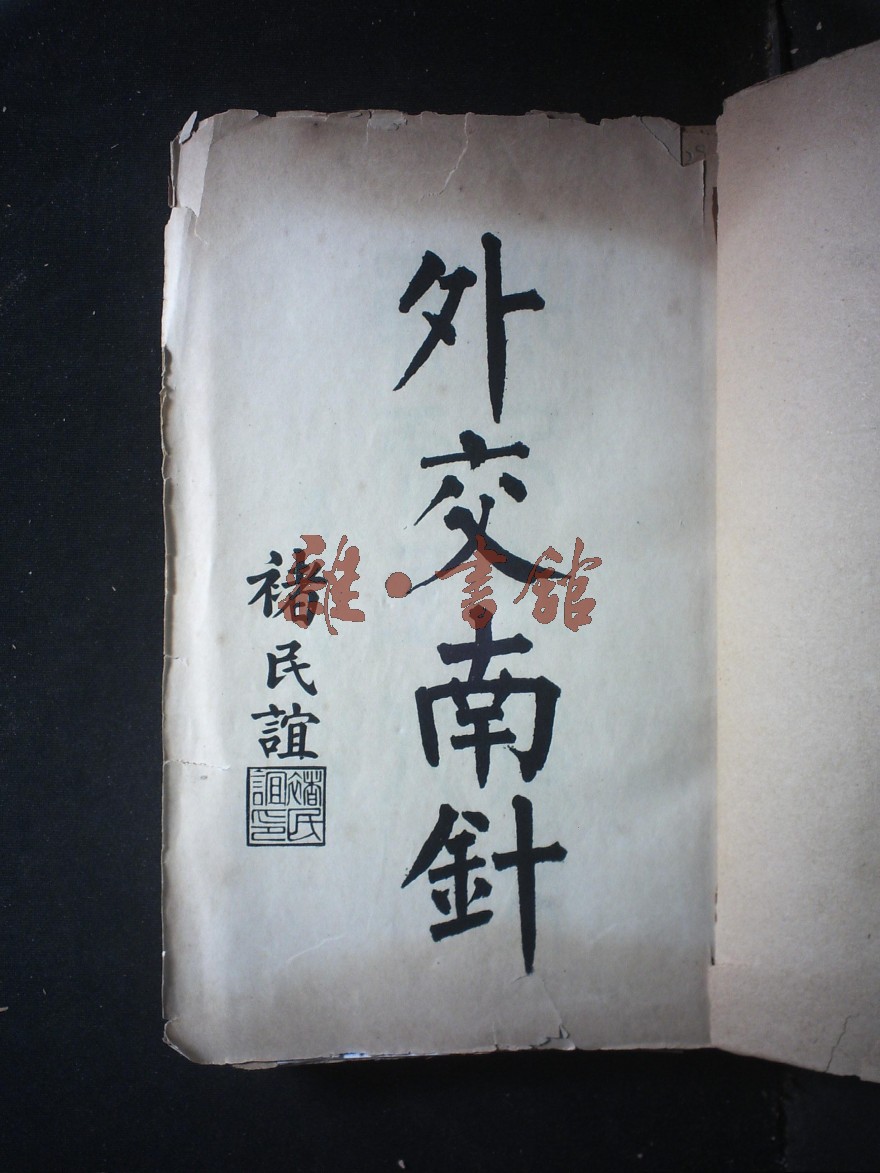 外交南針
褚民誼
褚民誼印
雜·書館